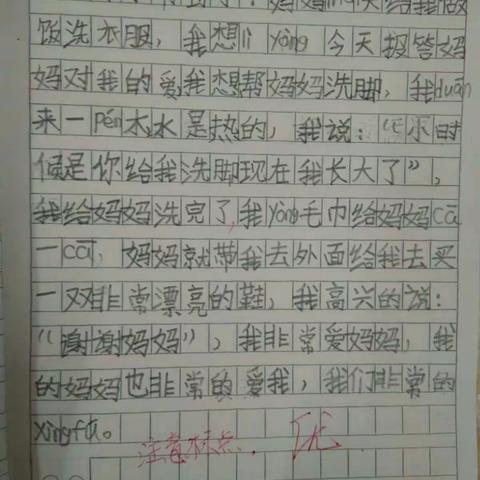 妈妈 天给我做
饭洗衣服，我想lì yòng今天报答妈
妈对我的爱，我想帮妈妈洗脚，我duān
来一pén水，水是热的，我说：“小时
候是你给我洗脚现在我长大了”，
我给妈妈洗完了，我yòng毛巾给妈妈cā
一cā，妈妈就带我去外面给我去买
一双非常漂亮的鞋，我高兴的说：
“谢谢妈妈”，我非常爱妈妈，我
的妈妈也非常的爱我，我们非常的
xìngfú。
注意标点、优